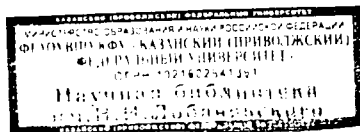 КАЗАНСКИЙ (ПРИВОЛЖСКИЙ) ФЕДЕРАЛЬНЫЙ УНИВЕРСИТЕТ
МИНИСТЕРСТВО ОБРАЗОВАНИЯ И НАУКИ РОССИЙСКОЙ ФЕДЕРАЦИИ
ФГАОУ ВПО КФУ «КАЗАНСКИЙ (ПРИВОЛЖСКИЙ)
ФЕДЕРАЛЬНЫЙ УНИВЕРСИТЕТ»
ОГРН 1021602841391
Научная библиотека
им. Н.И. Лобачевского